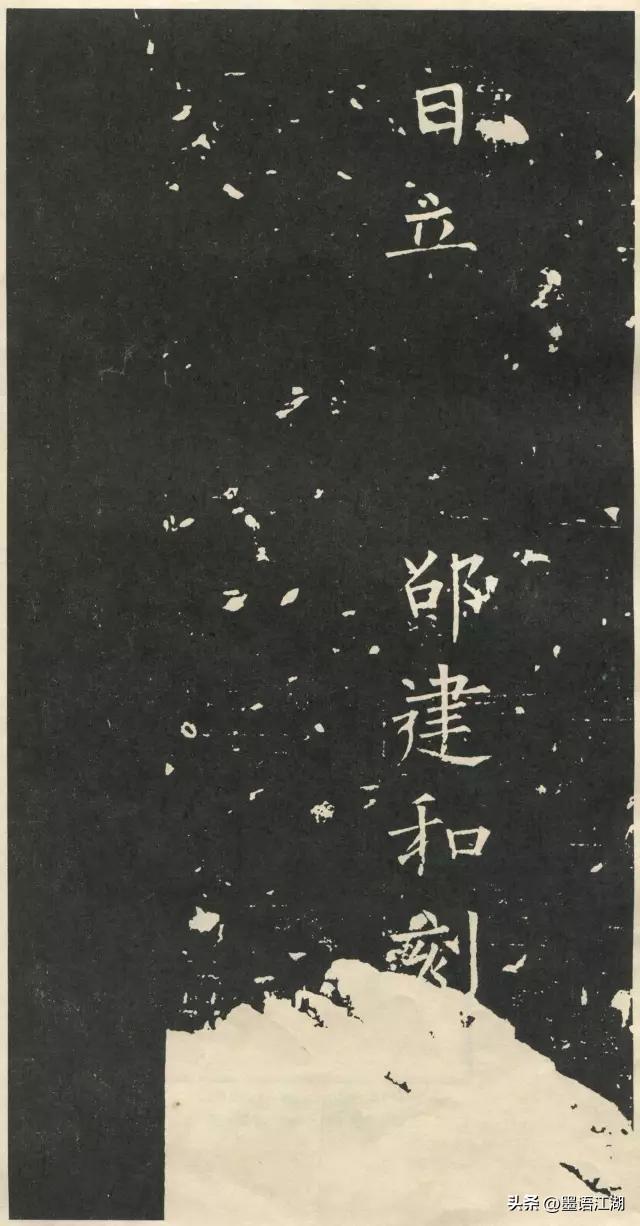 日立 邵建和刻
头条 @墨语江湖